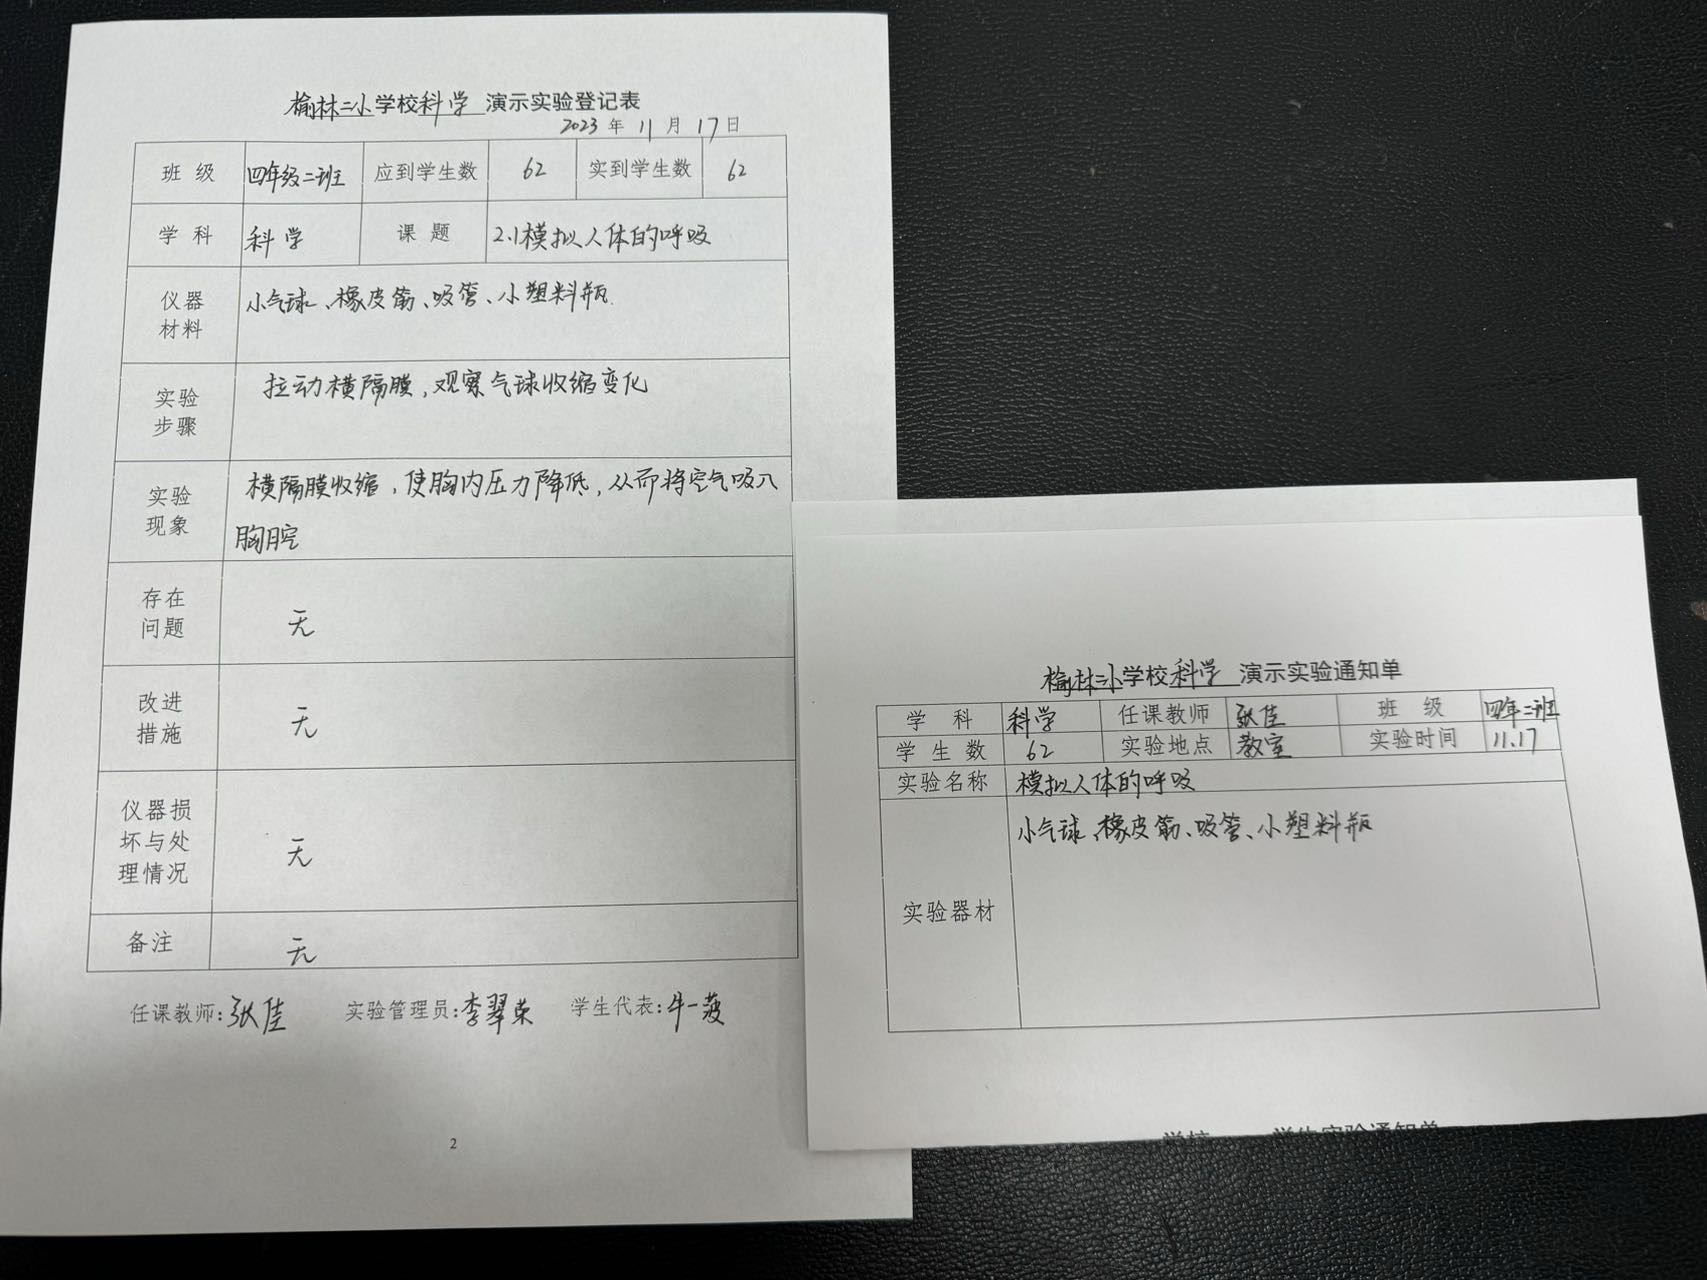 榆林二小学校科学 演示实验登记表
2023 年 11 月 17 日
班 级 四年级二班 应到学生数 62 实到学生数 62
学 科 科学 课 题 2.1模拟人体的呼吸
仪器
材料
小气球、橡皮筋、吸管、小塑料瓶.
实验
步骤
拉动横隔膜,观察气球收缩变化
实验
现象
横隔膜收缩,使胸内压力降低,从而将空气吸入
胸腔
存在
问题
无
改进
措施
无
仪器损
坏与处
理情况
无
备注 无
任课教师:张佳 实验管理员:李翠荣 学生代表:牛一菠
2
榆林二小学校科学 演示实验通知单
学 科 科学 任课教师 张佳 班 级 四年二班
学 生 数 62 实验地点 教室 实验时间 11.17
实验名称 模拟人体的呼吸
实验器材 小气球、橡皮筋、吸管、小塑料瓶
学校 学生实验通知单